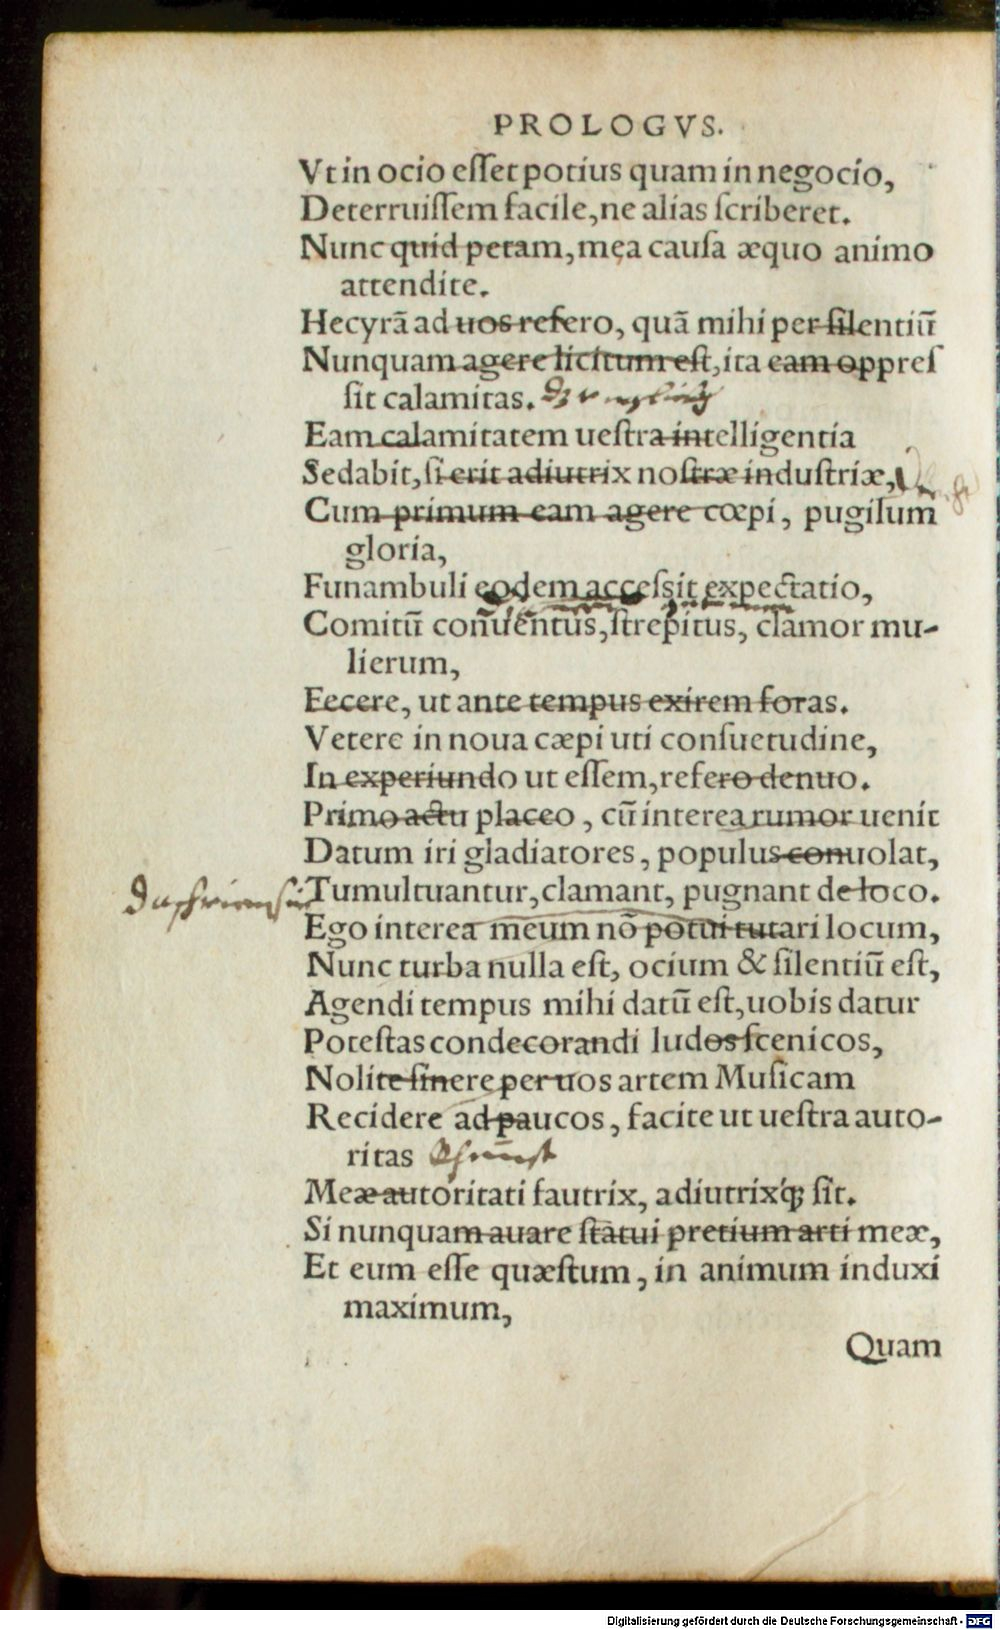 PROLOGVS.
Vt in ocio eſſet potius quam in negocio,
Deterruiſſem facile, ne alias ſcriberet.
Nunc quid petam, mea cauſa æquo animo
attendite.
Hecyrā ad uos refero, quā mihi per ſilentiū
Nunquam agere licitum est, ita eam oppreſ
ſit calamitas.
Eam calamitatem ueſtra intelligentia
Sedabit, ſi erit adiutrix noſtræ induſtriæ,
Cum primum eam agere cœpi, pugilum
gloria,
Funambuli eodem acceſsit expectatio,
Comitū conuentus, ſtrepitus, clamor mu-
lierum,
Fecere, ut ante tempus exirem foras.
Vetere in noua cæpi uti conſuetudine,
In experiundo ut eſſem, refero denuo.
Primo actu placeo, cū interea rumor uenit
Datum iri gladiatores, populus conuolat,
Tumultuantur, clamant, pugnant de loco.
Ego interea meum nō potui tutari locum,
Nunc turba nulla eſt, ocium & ſilentiū eſt,
Agendi tempus mihi datū eſt, uobis datur
Poteſtas condecorandi ludos ſcenicos,
Nolite ſinere per uos artem Muſicam
Recidere ad paucos, facite ut ueſtra auto-
ritas
Meæ autoritati fautrix, adiutrixq́ꝫ ſit.
Si nunquam auare ſtatui pretium arti meæ,
Et eum eſſe quæſtum, in animum induxi
maximum,
Quam
Digitalisierung gefördert durch die Deutsche Forschungsgemeinschaft - DFG